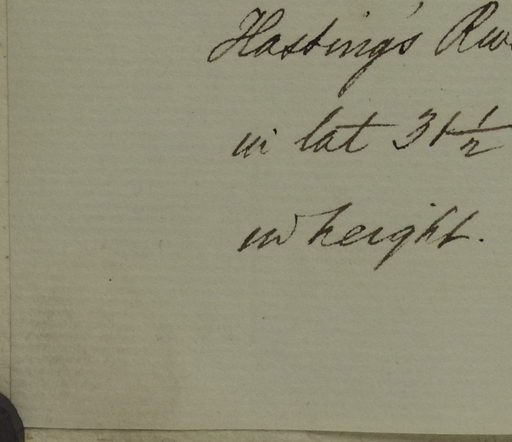 Hasting's Riv
in lat 31 1/2
in height.